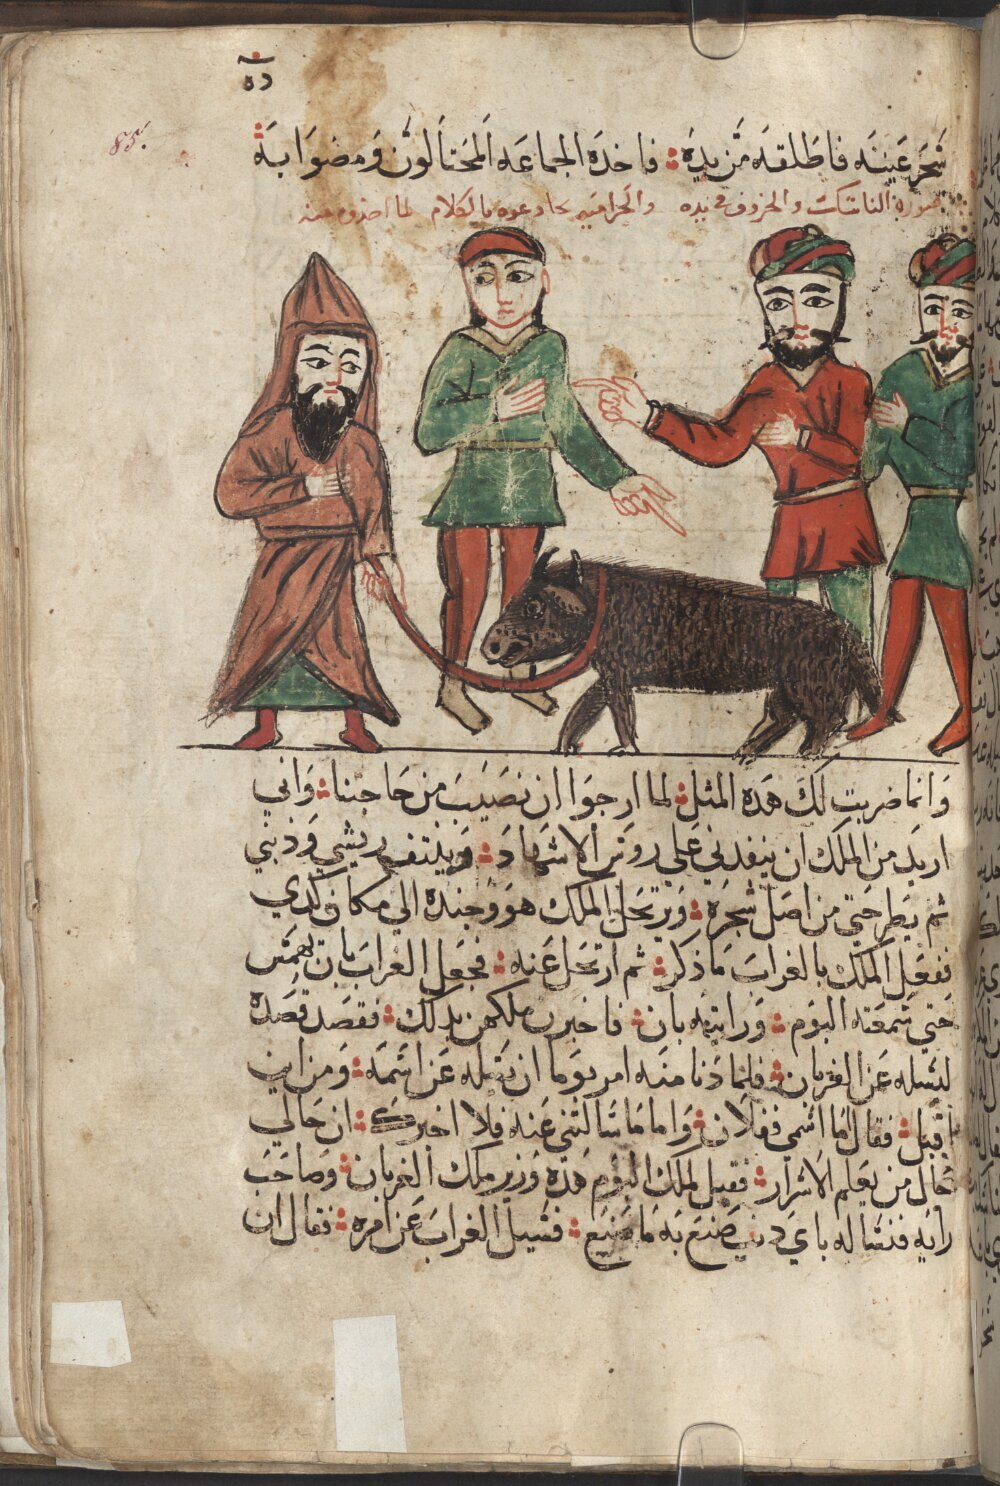 ده
85.
سَحَرَ عَينَه فاطَلقهَ مَن يدِهَ؛ فاخدهَ الجماعَه اَلمحَتاَلوُن وَمضوَا بَهَ
صورة الناسك والخروف في يده والحراميه يخادعوه بالكلام لما اخذوه منه
وَانما ضربت لَكَ هَدهَ المثل؛ لما ارجوَا ان نصَيَبَ مَن حَاجتنا؛ وَاني
اريدَ من الملك ان ينقدني عَلي روَس الاشهادَ؛ وَينتف ريشي وَدنبي
ثم يَطرحَني من اصَل شجره؛ وَيرتحَل الملك هوَ وَجندهَ الي مكان كدي
ففعَل الملك بالغراب مَا ذكر؛ ثم ارتحَل عَنه؛ فجعَل الغرابَ يان يهمَس
حَتي سَمعَته البوَم؛ وَراينه يان؛ فاخبرن ملكهن بدلك؛ فقصَد قصَدهَ
ليسَله عَن الغربان؛ فلما دَنا منهَ امر بوَما ان يسَله عَن اسَمهَ؛ وَمن اين
اقبل؛ فقال اَما اسَمي ففلاَن؛ وَاما مَا سَالتني عَنه فلا اخبرك؛ ان حَالي
حَال من يعَلم الاسَرار؛ فقيل لملك البوَم هَدهَ وَزير ملك الغربان؛ وَصاحَبَ
رايه فنسَاله باي دَنب صَنعَ بهَ مَا صَنيَع؛ فسَيل الغرابَ عَن امره؛ فقال ان